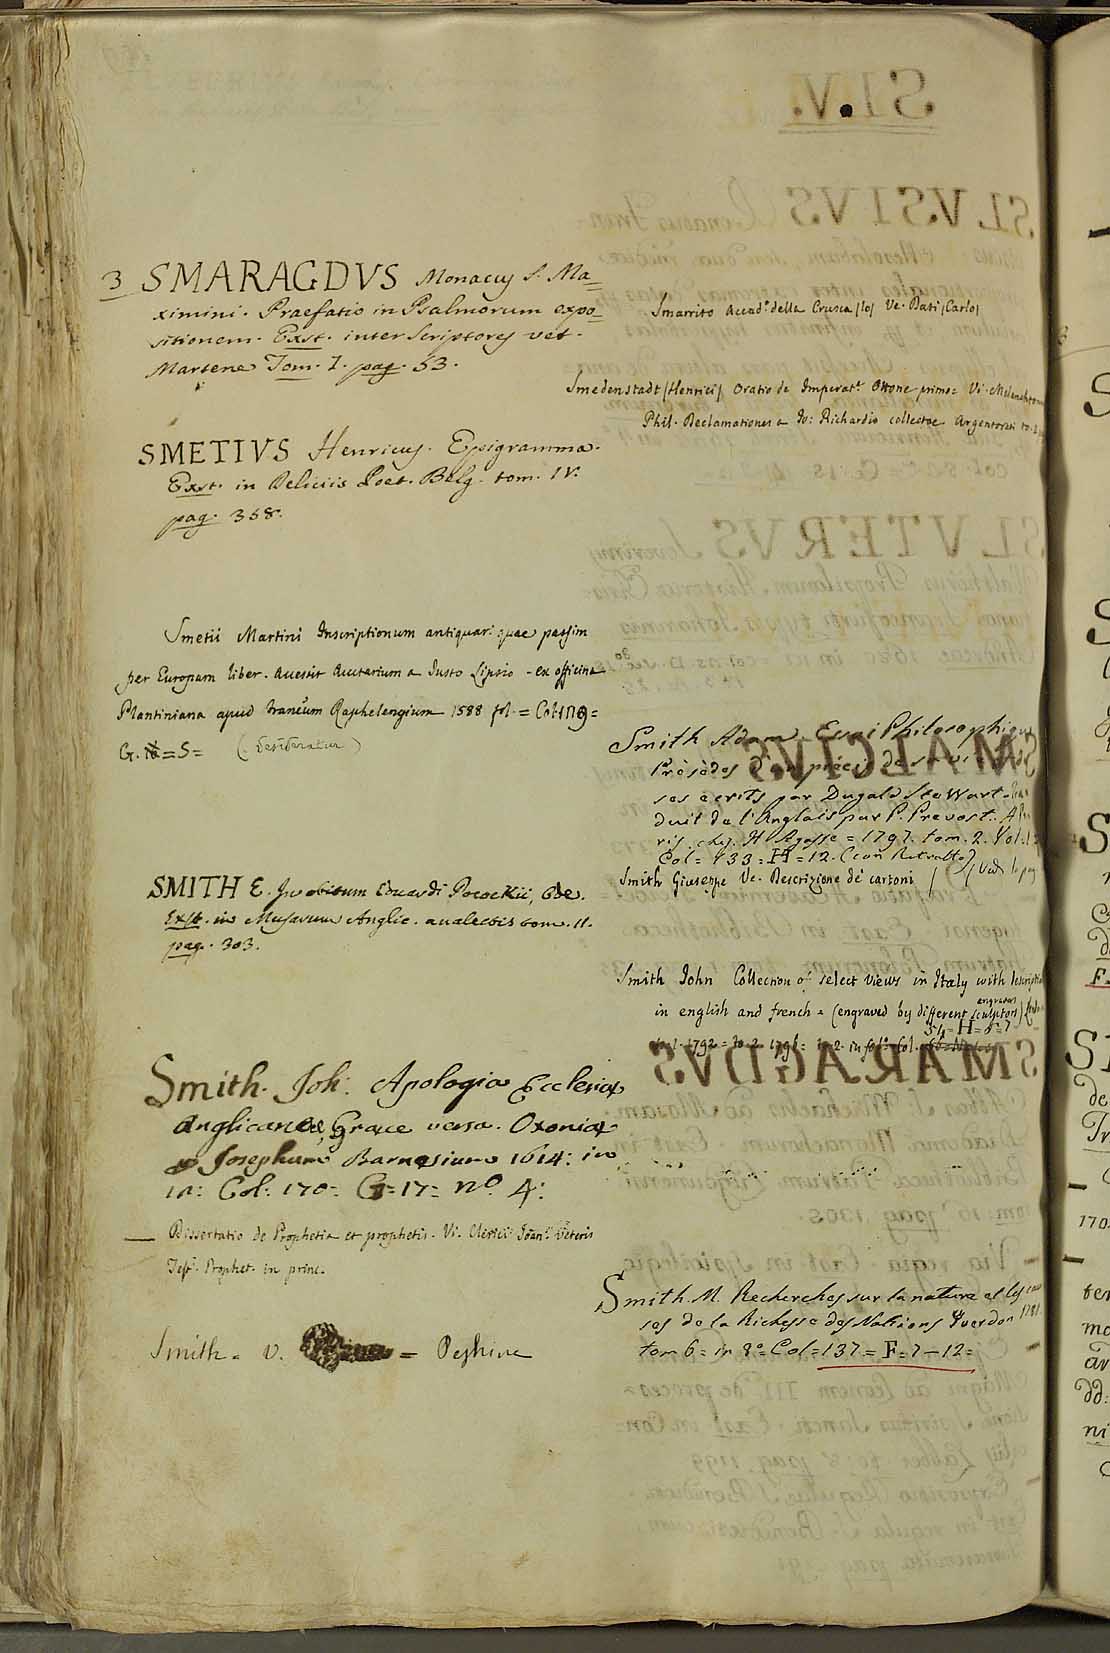 3 SMARAGDVS Monacus S. Ma=
ximini. Praefatio in Psalmorum expo=
sitionem. Exst. inter Scriptores vet.
Martene Tom. I. pag. 53.
SMETIVS Henricus. Epigramma.
Exst. in Deliciis Poet. Belg. tom. IV.
pag. 358.
Smetii Martini Inscriptionum antiquar. quae passim
per Europam liber. Accessit Auctarium a Justo Lipsio - ex officina
Plantiniana apud Raphelengium 1588 fol. =
G. = S = (desideratur)
SMITH E. In obitum Eduardi Pocockii, Ode.
Exst. in Musarum Anglic. analectis tom. II.
pag. 303.
Smith. Joh: Apologia Ecclesiae
Anglicanae, Graece versa. Oxoniae
Josephum Barnesium 1614: in
12: Col: 170= G=17= no. 4:
— Dissertatio de Prophetia et prophetis. Vi. Clerici Joan. Veteris
Test. Prophet. in princ.
Smith = v. = Peshine
Smarrito Accad.o della Crusca (lo) Ve. Dati (Carlo)
Smedenstadt (Henrici) Oratio de Imperat.e Ottone primo= Vi. Melanchton
Phil. Declamationes a Jo: Richardio collectae Argentorati to.
Smith Adam. Essai Philosophiques
Précédés d'un précis de sa vie
ses écrits par Dugald Stewart.
duit de l'Anglais par P. Prevost. A Pa
ris. chez. H Agasse = 1797. tom. 2. Vol.
Col= 133= H=12. (con Ritratto)
Smith Giuseppe Ve. Descrizione de' cartoni
Smith John Collection of select Views in Italy with
in english and french = (engraved by different sculptors)
engravers
54= H=5=7
to. 1. 1792 = to. 2. 1796 = in 2. in fol. Col.
Smith. M. Recherches sur la nature et les cau
ses de la Richesse des Nations Yverdon 1781
tom 6= in 8o= Col=137= F=7-12=